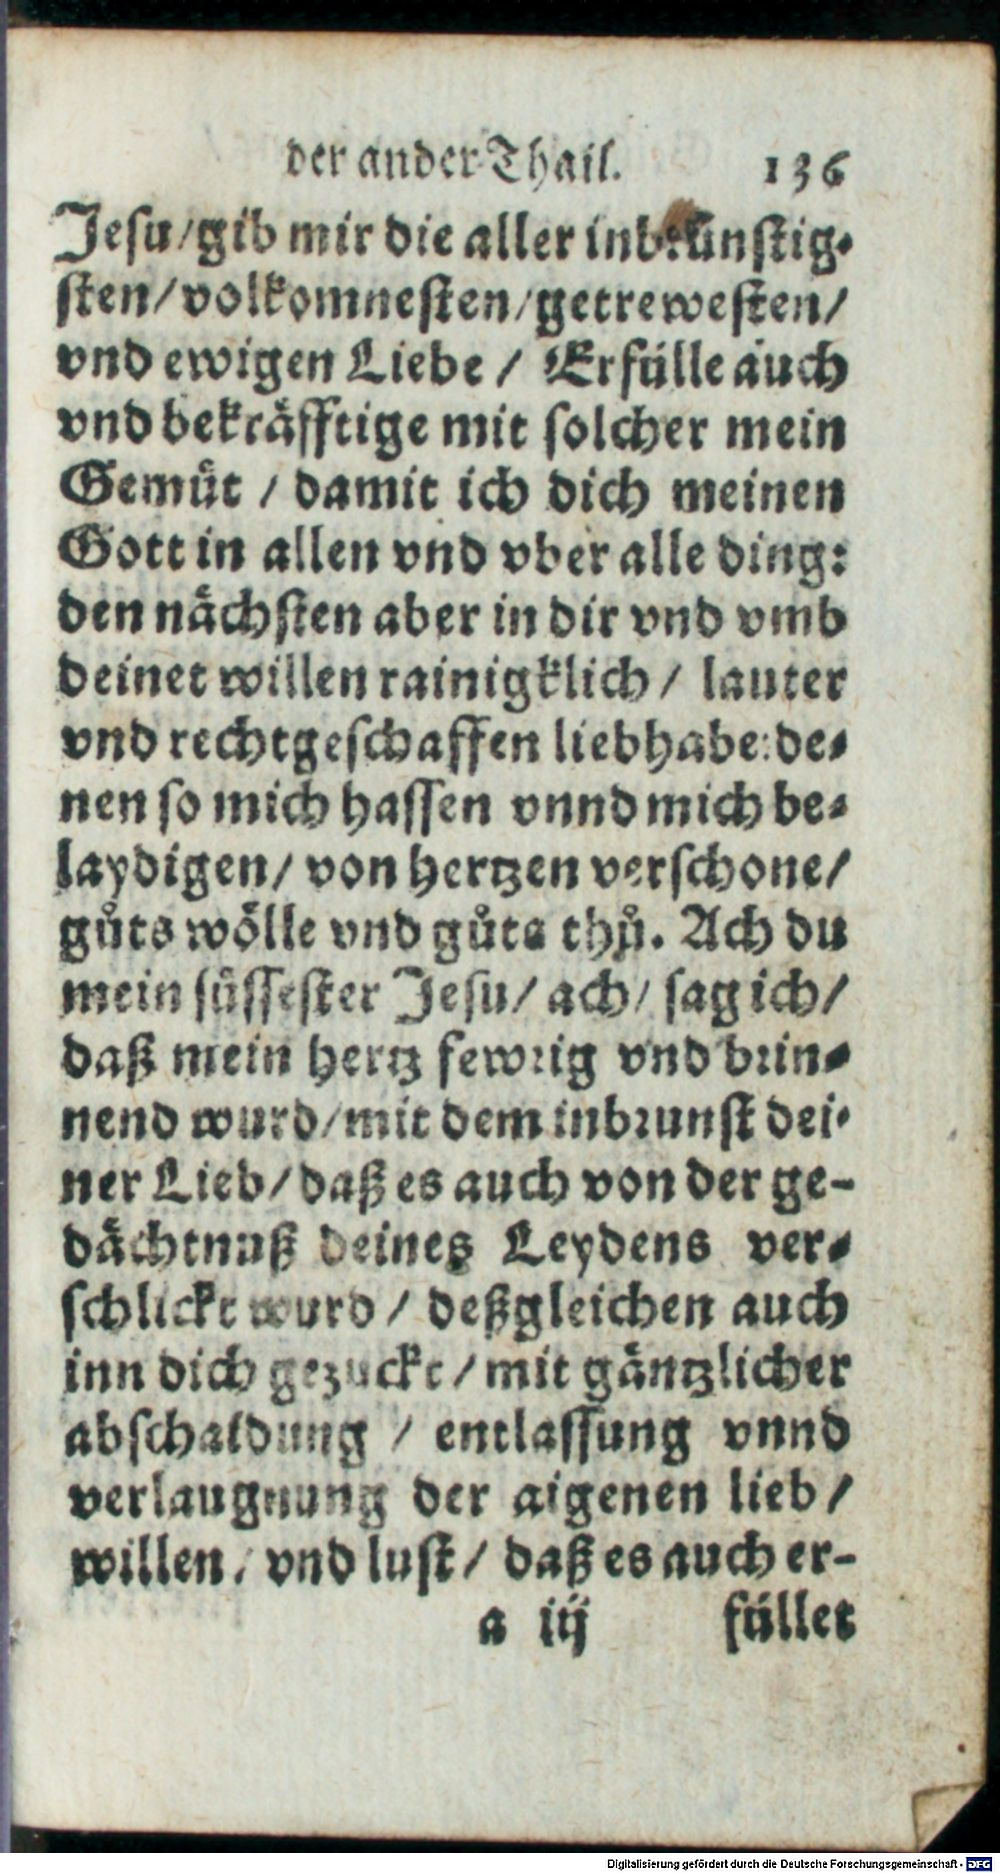 der ander Thail. 136
Jesu/gib mir die aller inbrünstig-
sten/volkomnesten/getrewesten/
vnd ewigen Liebe / Erfülle auch
vnd bekräfftige mit solcher mein
Gemüt / damit ich dich meinen
Gott in allen vnd vber alle ding:
den nächsten aber in dir vnd vmb
deinet willen rainigklich / lauter
vnd rechtgeschaffen liebhabe: de-
nen so mich hassen vnnd mich be-
laydigen/ von hertzen verschone/
gůts wölle vnd gůts thů. Ach du
mein süssester Jesu/ ach/ sag ich/
daß mein hertz fewrig vnd brin-
nend wurd/mit dem inbrunst dei-
ner Lieb/daß es auch von der ge-
dächtnuß deines Leydens ver-
schlickt wurd / deßgleichen auch
inn dich gezuckt/mit gäntzlicher
abschaidung / entlassung vnnd
verlaugnung der aigenen lieb/
willen/ vnd lust/ daß es auch er-
a iij füllet
Digitalisierung gefördert durch die Deutsche Forschungsgemeinschaft - DFG